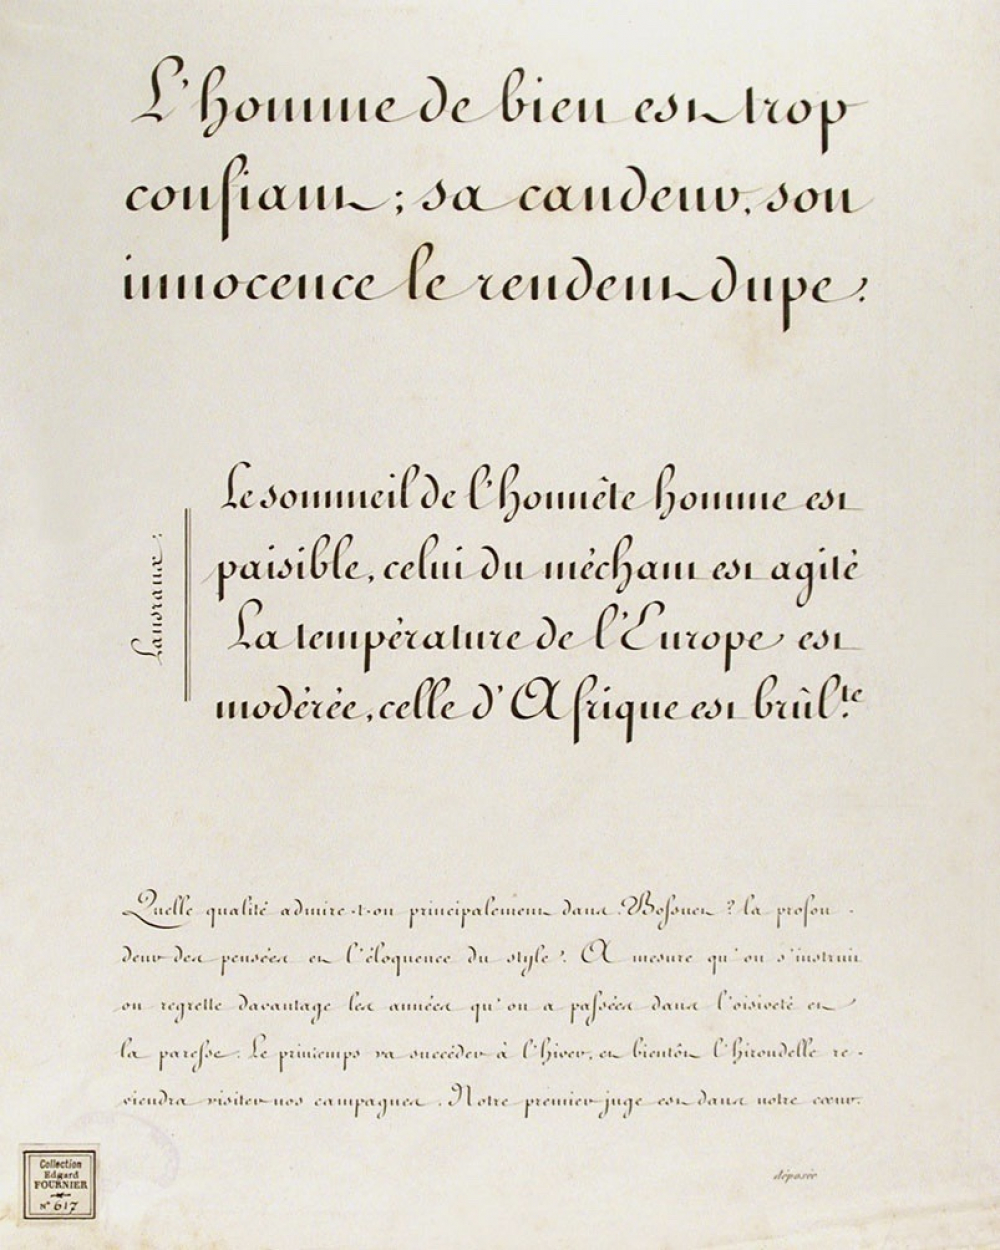 L'homme de bien est trop
confiant ; sa candeur, son
innocence le rendent dupe.
Landraux.
Le sommeil de l'honnête homme est
paisible, celui du méchant est agité
La température de l'Europe est
modérée, celle d'Afrique est brûl.te
Quelle qualité admire-t-on principalement dans Bossuet ? la profon-
deur des pensées et l'éloquence du style. A mesure qu'on s'instruit
on regrette davantage les années qu'on a passées dans l'oisiveté et
la paresse. Le printemps va succéder à l'hiver, et bientôt l'hirondelle re-
viendra visiter nos campagnes. Notre premier juge est dans notre cœur.
déposée
Collection
Edgard
FOURNIER
N° 617